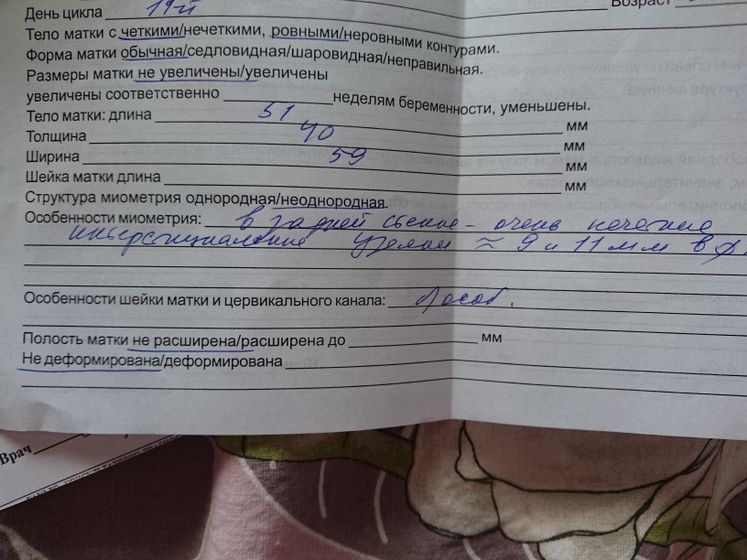 День цикла 19й Возраст
Тело матки с четкими/нечеткими, ровными/неровными контурами.
Форма матки обычная/седловидная/шаровидная/неправильная.
Размеры матки не увеличены/увеличены
увеличены соответственно неделям беременности, уменьшены.
Тело матки: длина 51 мм
Толщина 40 мм
Ширина 59 мм
Шейка матки длина мм
Структура миометрия однородная/неоднородная.
Особенности миометрия: в задней стенке - очень нечеткие
интерстициальные узелки ≈ 9 и 11 мм в
Особенности шейки матки и цервикального канала:
Полость матки не расширена/расширена до мм
Не деформирована/деформирована
Врач